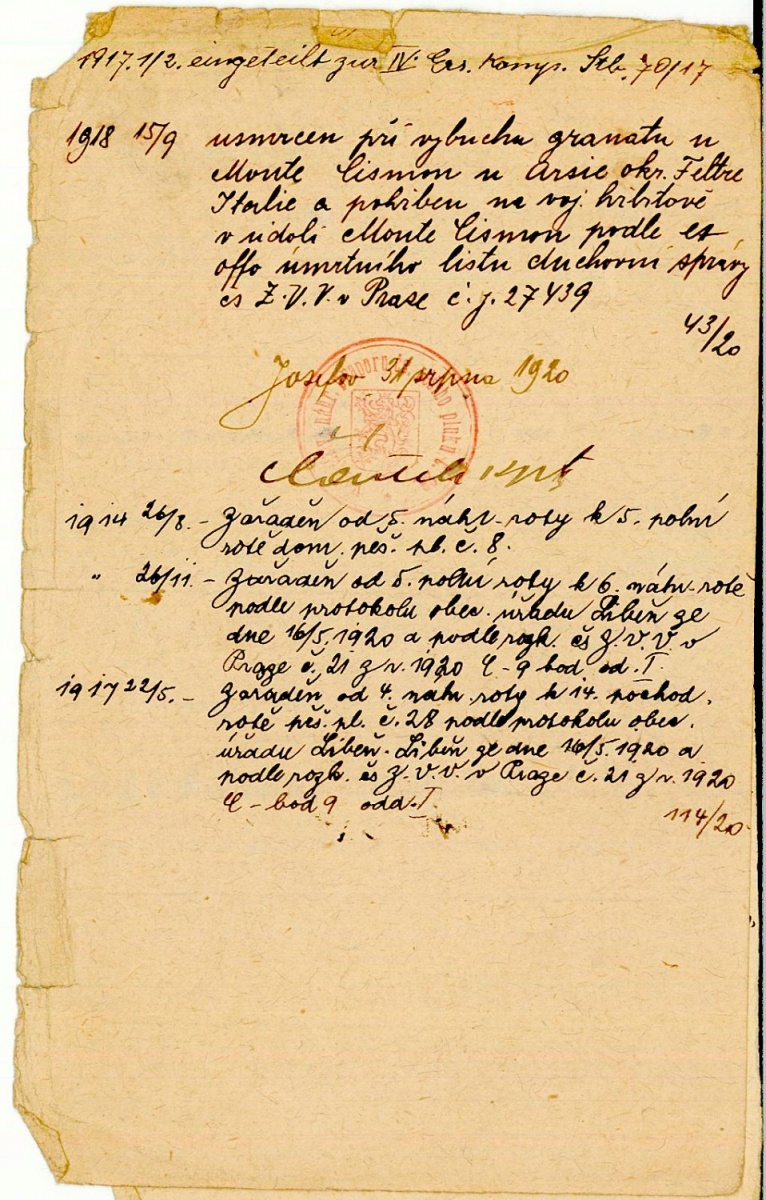 1917. 1/2. eingeteilt zur IV. Ers. Komp. Stb. 70/17
1918 15/9 usmrcen při vybuchu granatu u
Monte Cismon u Arsie okr. Feltre
Italie a pohřben na voj. hřbitově
v údolí Monte Cismon podle ex
offo úmrtního listu duchovní správy
čs Z.V.V. v Praze č. j. 27439
43/20
Josefov 31 srpna 1920
1914 26/8. - Zařaděn od 5. náhr. roty k 5. polní
rotě dom. pěš. pl. č. 8.
" 26/11. - Zařaděn od 5. polní roty k 6. náhr. rotě
podle protokolu obec. úřadu Libeň ze
dne 16/5. 1920 a podle rozk. čs Z.V.V. v
Praze č. 21 z r. 1920 C - 9 bod. od. I.
1917 22/5. - Zařaděn od 4. náhr. roty k 14. pochod.
rotě pěš. pl. č. 28 podle protokolu obec.
úřadu Libeň - Libeň ze dne 16/5. 1920 a
podle rozk. čs Z.V.V. v Praze č. 21 z r. 1920
C - bod 9 odd. I.
114/20